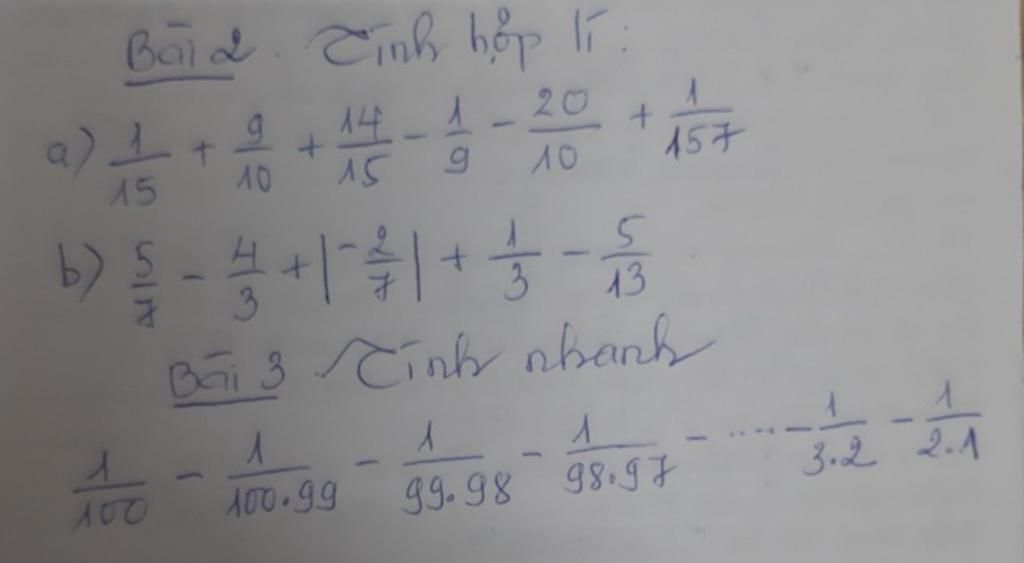 Bài 2. Tính hợp lí:
a) 1/15 + 9/10 + 14/15 - 1/9 - 20/10 + 1/157
b) 5/7 - 4/3 + |-2/7| + 1/3 - 5/13
Bài 3. Tính nhanh
1/100 - 1/100.99 - 1/99.98 - 1/98.97 - ..... - 1/3.2 - 1/2.1